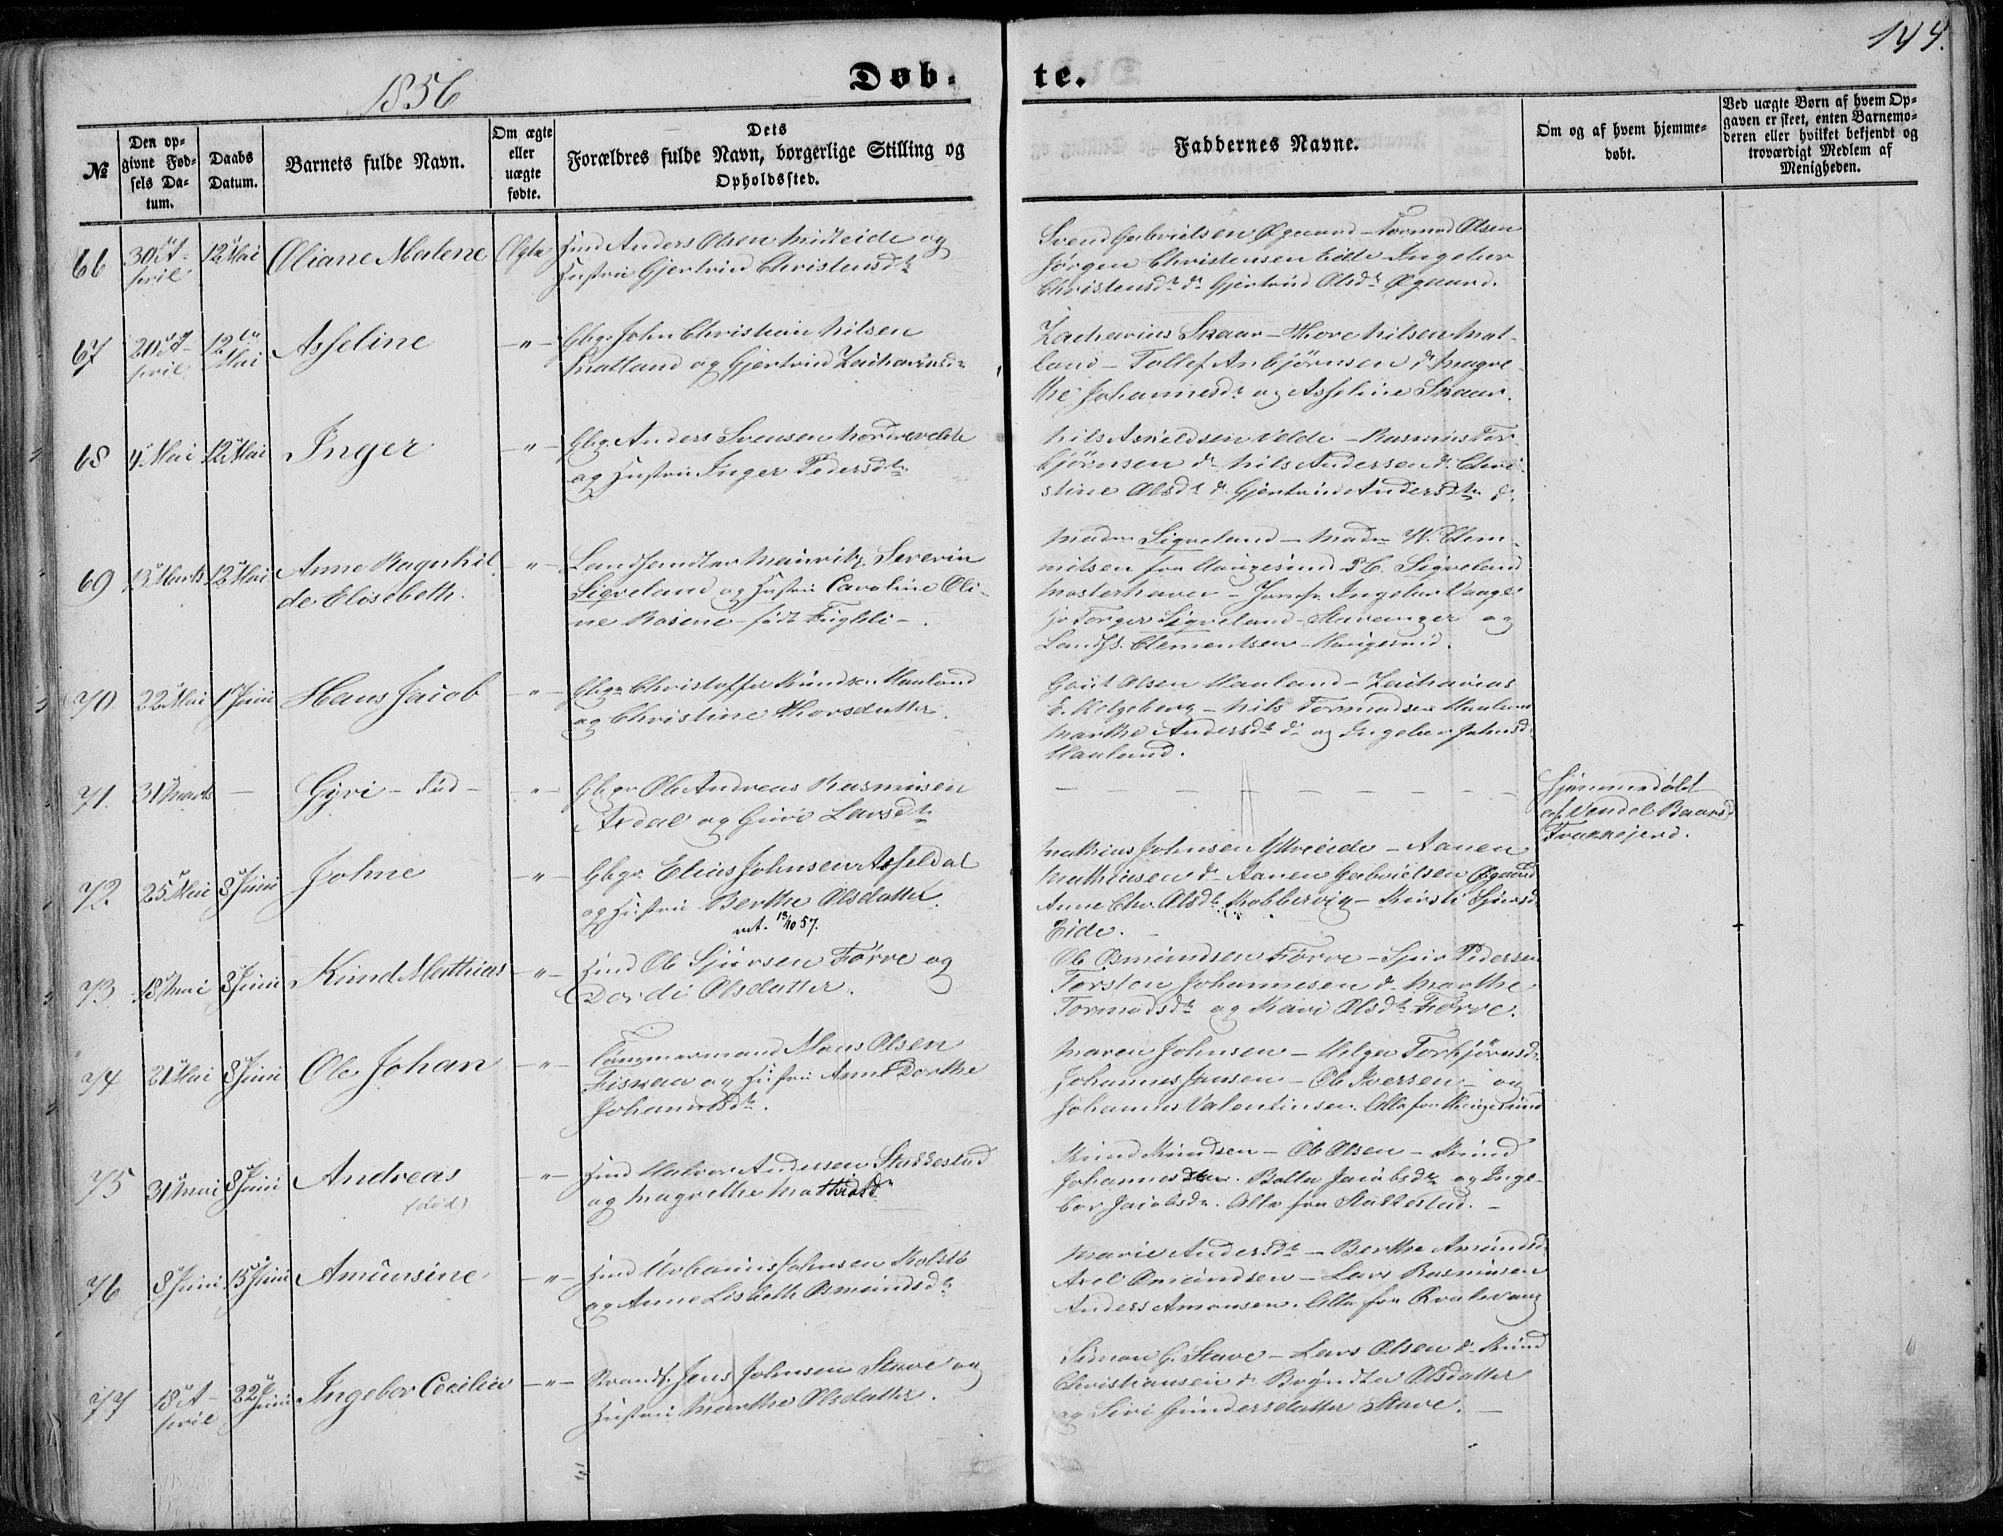 144.
1856
Døb- te.
№
Den op-
givne Fød-
sels Da-
tum.
Daabs
Datum.
Barnets fulde Navn.
Om ægte
eller
uægte
fødte.
Dets
Forældres fulde Navn, borgerlige Stilling og
Opholdssted.
Faddernes Navne.
Om og af hvem hjemme-
døbt.
Ved uægte Børn af hvem Op-
gaven er skeet, enten Barnemo-
deren eller hvilket bekjendt og
troværdigt Medlem af
Menigheden.
66 30 A-
pril 12 Mai Oliane Malene Ægte
Huusmd Anders Olsen Midteide og
Hustru Gjertrud Christensdtr
Svend Gabrielsen Øgaard - Tormod Olsen
Jørgen Christensen Eide Ingebor
Christensdtr do Gjertrud Olsdtr Øgaard.
67 20 A-
pril 12te
Mai Asseline -"-
Gbgr John Christian Nilsen
Matland og Gjertrud Zachariasdtr
Zacharias Skaar - Thore Nilsen Mat-
land - Tollef Anbjørnsen do Magre-
the Johannesdtr og Asseline Skaar.
68 4 Mai 12 Mai Inger -"-
Gbgr Anders Svensen Nordrevelde
og Hustru Inger Pedersdtr
Nils Velde - Rasmus Tor-
bjørnsen do Nils Andersen do Chri-
stine Olsdtr do Gjertrud Andersdtr do
69 13 Marts 12 Mai Anne Ragnhil-
de Elisebeth. -"-
Landhandler Mauritz Severin
Sigveland og Hustru Caroline Oli-
ne Rosine - født
Madm Sigveland - Madm W. Clem-
mitsen fra Haugesund P C. Sigveland
Mosterhavn - Jomfr Ingebor Vaage
Torger Sigveland - Stavanger og
Landh. Clementsen Haugesund.
70 22 Mai 1 Juni Hans Jacob -"-
Gbgr Christoffer Knudsen Hauland
og Christine Thorsdatter.
Gaut Olsen Hauland - Zacharias
E. Helgeberg - Nils Tormodsen Hauland
Marthe Andersdtr do og Ingebor Johnsd
Hauland.
71. 31 Marts - Gyri - Død - -"-
Gbgr Ole Andreas Rasmusen
Axdal og Guri Larsdtr
Hjemmedøbt
af Vendel Baars
72 25 Mai 8 Juni Johne -"-
Gbgr Elias Johnsen Asseldal
og Hustru Berthe Olsdatter.
vet. 13/10 57.
Mathias Johnsen Yttreeide - Aanen
Mathiasen do Aanen Gabrielsen Øgaard
Anne Chr. Olsdtr Kobbervig - Kirsti
Eide.
73. 18 Mai 8 Juni Knud Mathias -"-
Huusmd Ole Sjursen Førre og
Dordi Olsdatter.
Ole Osmundsen Førre - Sjur Pedersen
Torsten Johannesen do Marthe
Tormodsdtr og Kari Olsdtr Førre.
74 21 Mai 8 Juni Ole Johan -"-
Tømmermand Mons Olsen
og Hustru Anne Dorthe
Johannesdtr.
Maren Johnsen - Helga Torbjørnsd.
Johannes Jansen - Ole Iversen - og
Johannes Valentinsen. Alle fra Haugesund
75 31 Mai 8 Juni Andreas
(død) -"-
Huusmd Halvor Andersen Stakkestad
og Magrethe Mathiasdtr
Knud Knudsen - Ole Olsen - Knud
Johannesen. Jacobsdtr og Inge-
bor Jacobsdtr. Alle fra Stakkestad. -
76 8 Juni 15 Juni Amunsine -"-
Huusmd Urbanus Johnsen Kolstø
og Anne Lisbeth Osmundsdtr
Marie Andersdtr - Berthe Amundsd.
Axel Omundsen - Lars Rasmusen
Anders Amonsen. Alle fra Qvalevaag
77 18 A-
pril 22 Juni Ingebor Cecilia -"-
Jens Johnsen Stave og
Hustru Marthe Olsdatter.
Simon G. Stave - Lars Olsen do Knud
Christiansen do Olsdatter
og Siri Gundersdatter Stave. -